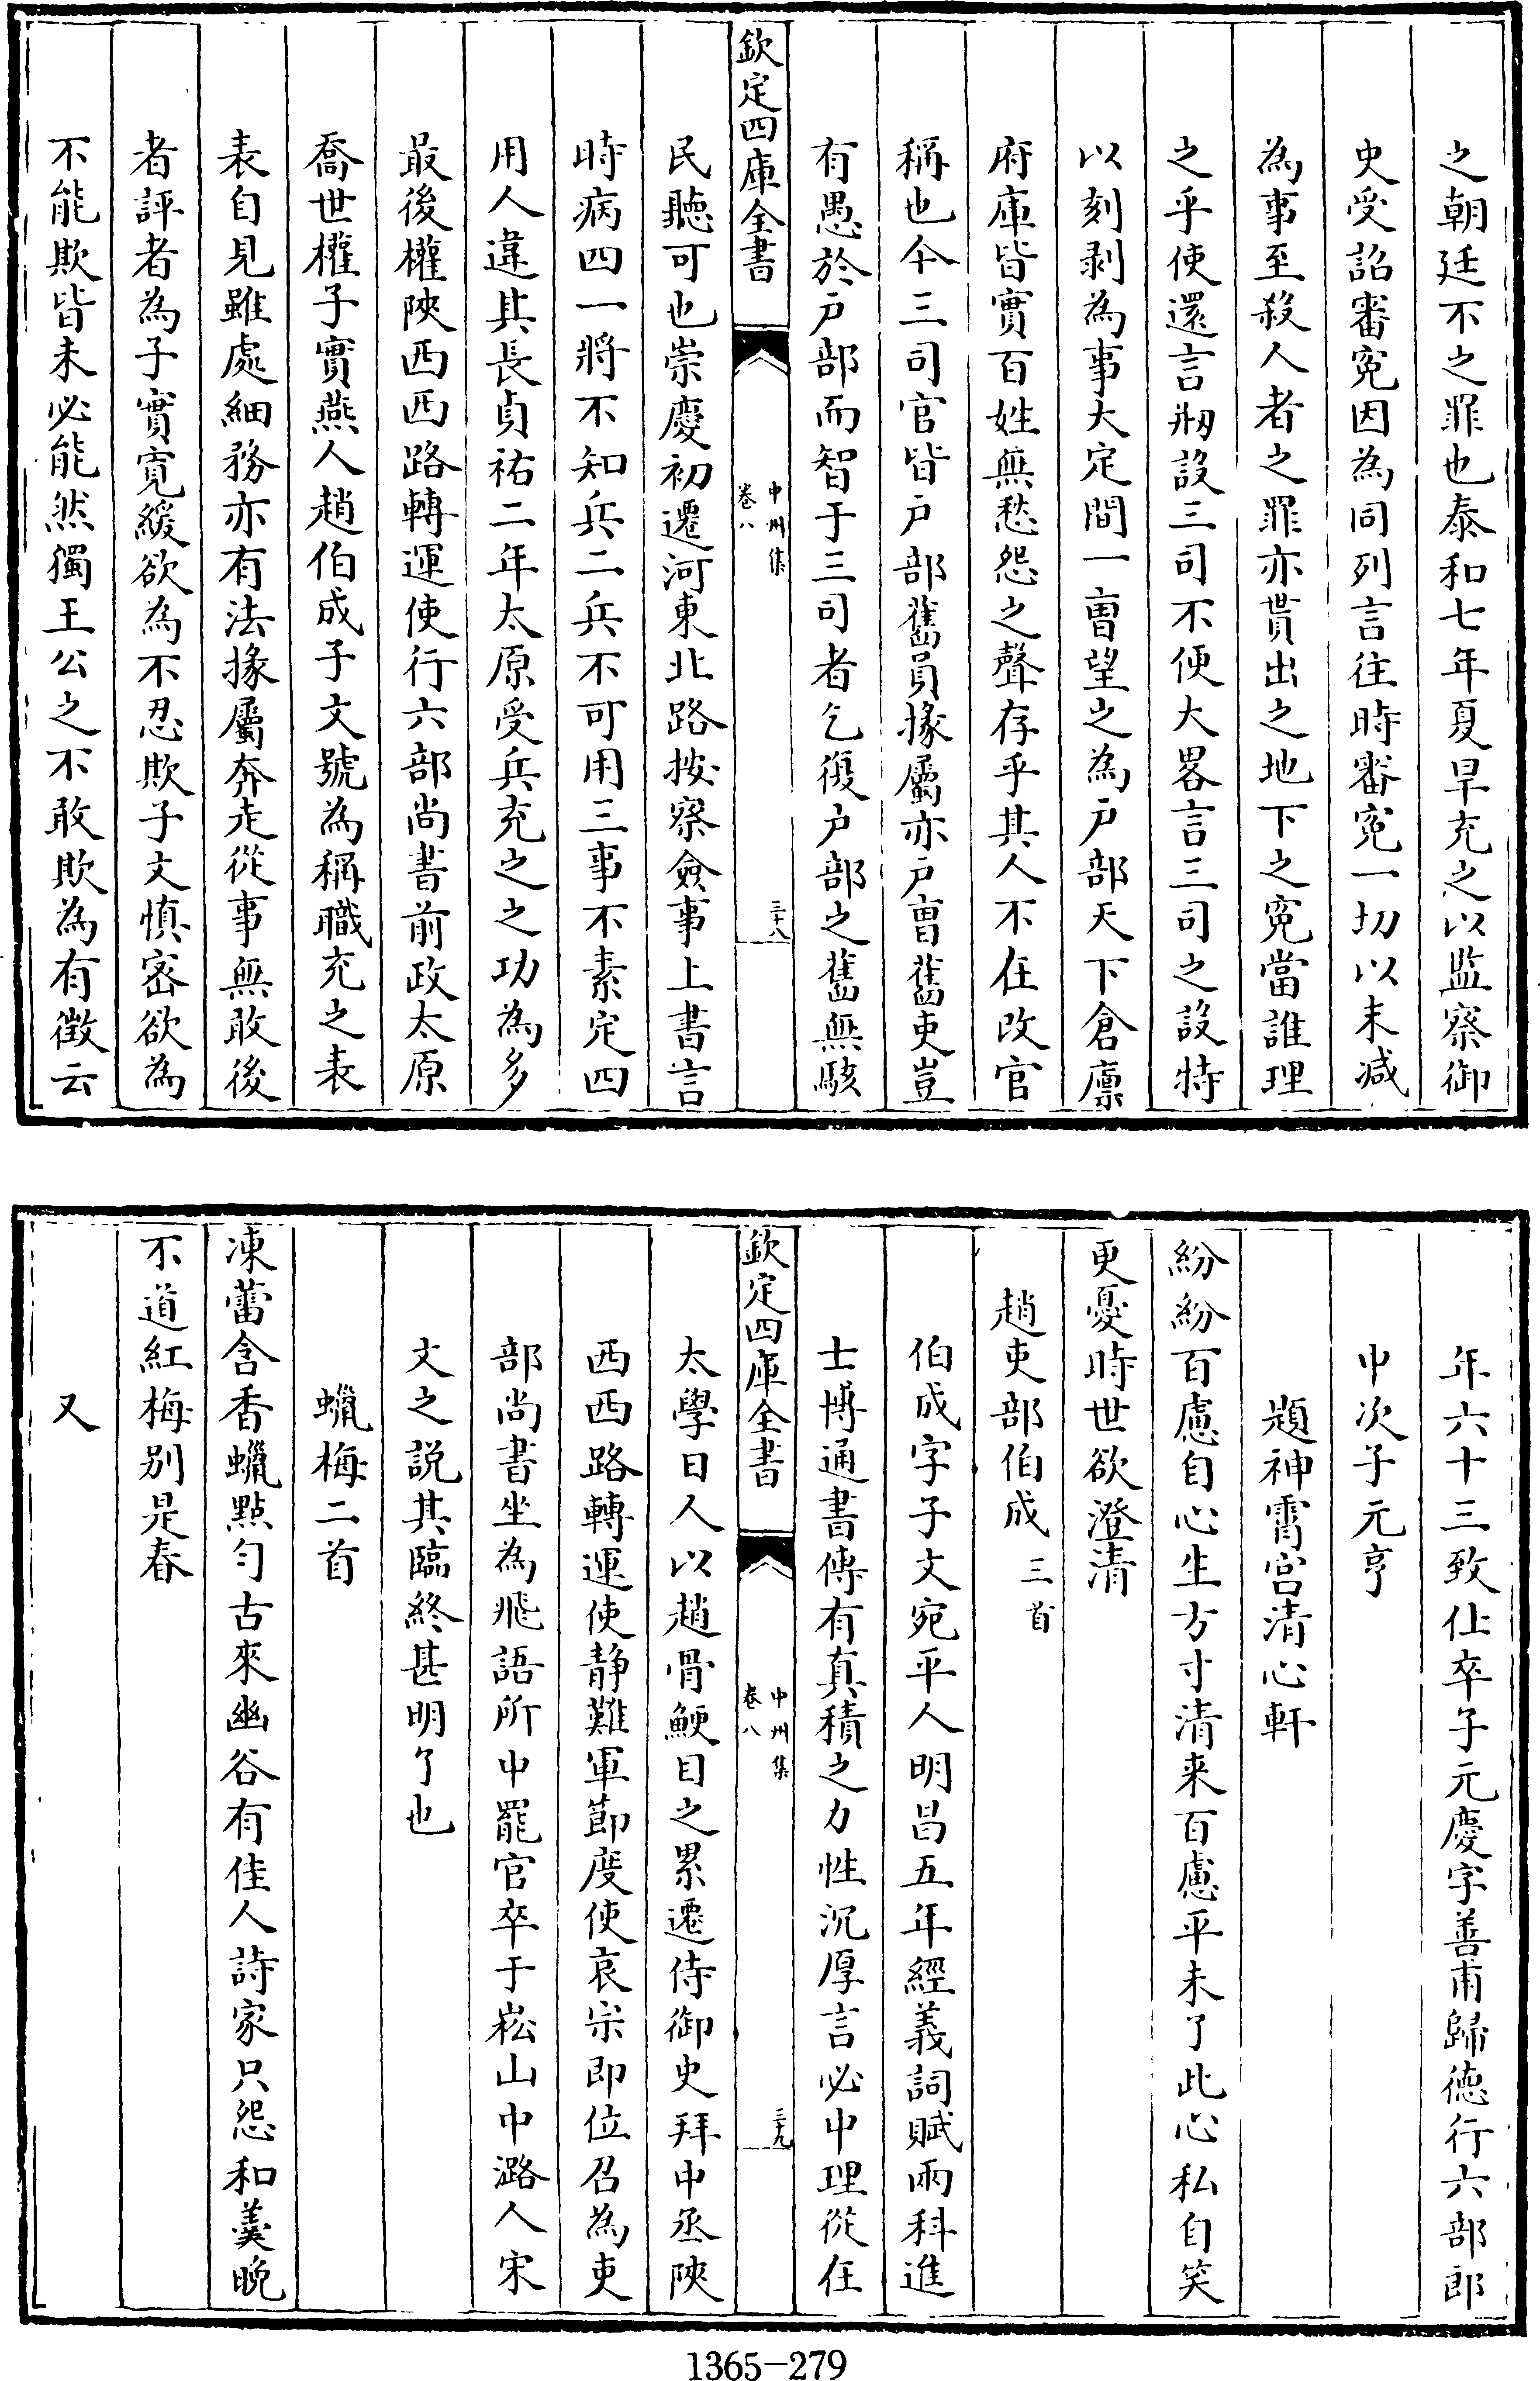 之朝廷不之罪也泰和七年夏旱充之以監察御
史受詔審寃因為同列言往時審寃一切以末減
為事至殺人者之罪亦貰出之地下之寃當誰理
之乎使還言刱設三司不便大畧言三司之設特
以刻剥為事大定間一曺望之為户部天下倉廪
府庫皆實百姓無愁怨之聲存乎其人不在改官
稱也今三司官皆户部舊員掾屬亦户曺舊吏豈
有愚於户部而智于三司者乞復户部之舊無駭
欽定四庫全書
中州集
卷八
三十八
民聽可也崇慶初遷河東北路按察僉事上書言
時病四一將不知兵二兵不可用三事不素定四
用人違其長貞祐二年太原受兵充之之功為多
最後權陜西西路轉運使行六部尚書前政太原
喬世權子實燕人趙伯成子文號為稱職充之表
表自見雖處細務亦有法掾屬奔走從事無敢後
者評者為子實寛緩欲為不忍欺子文慎宻欲為
不能欺皆未必能然獨王公之不敢欺為有徴云
年六十三致仕卒子元慶字善甫歸德行六部郎
中次子元亨
題神霄宮清心軒
紛紛百慮自心生方寸清来百慮平未了此心私自笑
更憂時世欲澄清
趙吏部伯成 三首
伯成字子文宛平人明昌五年經義詞賦兩科進
士博通書傳有真積之力性沉厚言必中理從在
欽定四庫全書
中州集
卷八
三十九
太學日人以趙骨鯁目之累遷侍御史拜中丞陜
西西路轉運使静難軍節度使哀宗即位召為吏
部尚書坐為飛語所中罷官卒于崧山中潞人宋
文之説其臨終甚明了也
蠟梅二首
凍蕾含香蠟點勻古來幽谷有佳人詩家只怨和羹晚
不道紅梅别是春
又
1365-279